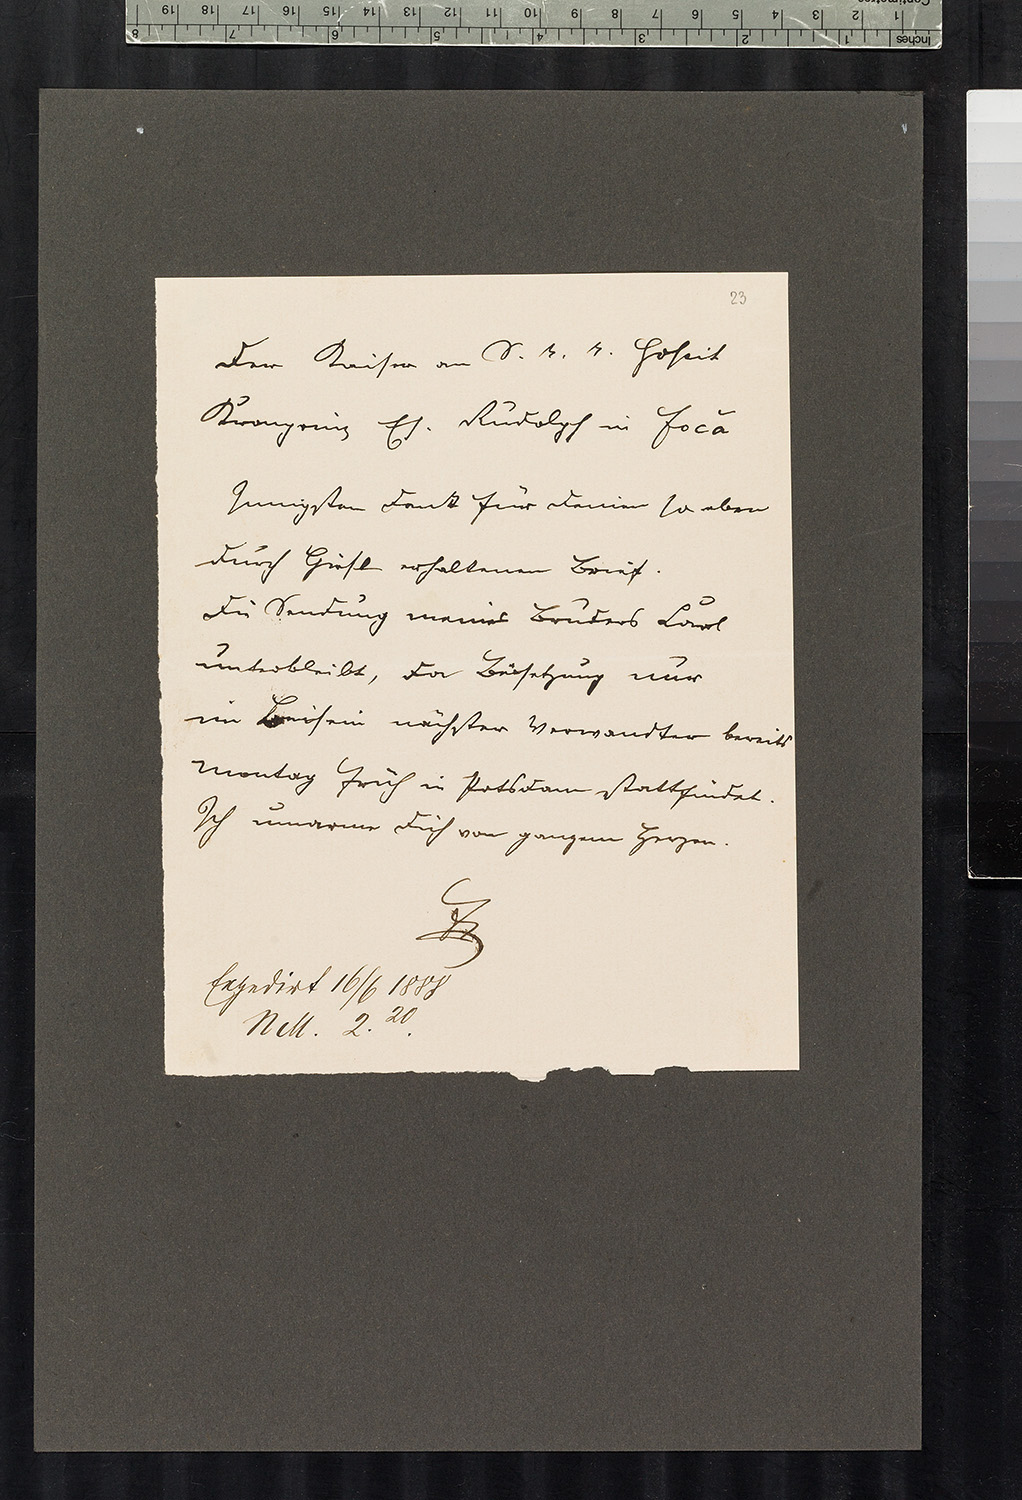 23
Der Kaiser an S. k. k. Hoheit
Kronprinz Eh. Rudolph in Foča
Innigsten Dank für Deinen so eben
durch Giesl erhaltenen Brief.
Die Sendung meines Bruders Carl
unterbleibt, da Beisetzung nur
im Beisein nächster Verwandter bereits
Montag früh in Potsdam stattfindet.
Ich umarme Dich von ganzem Herzen.
Expedirt 16/6 1888
NM. 2.20.
Inches 1 2 3 4 5 6 7 8
Centimetres 1 2 3 4 5 6 7 8 9 10 11 12 13 14 15 16 17 18 19